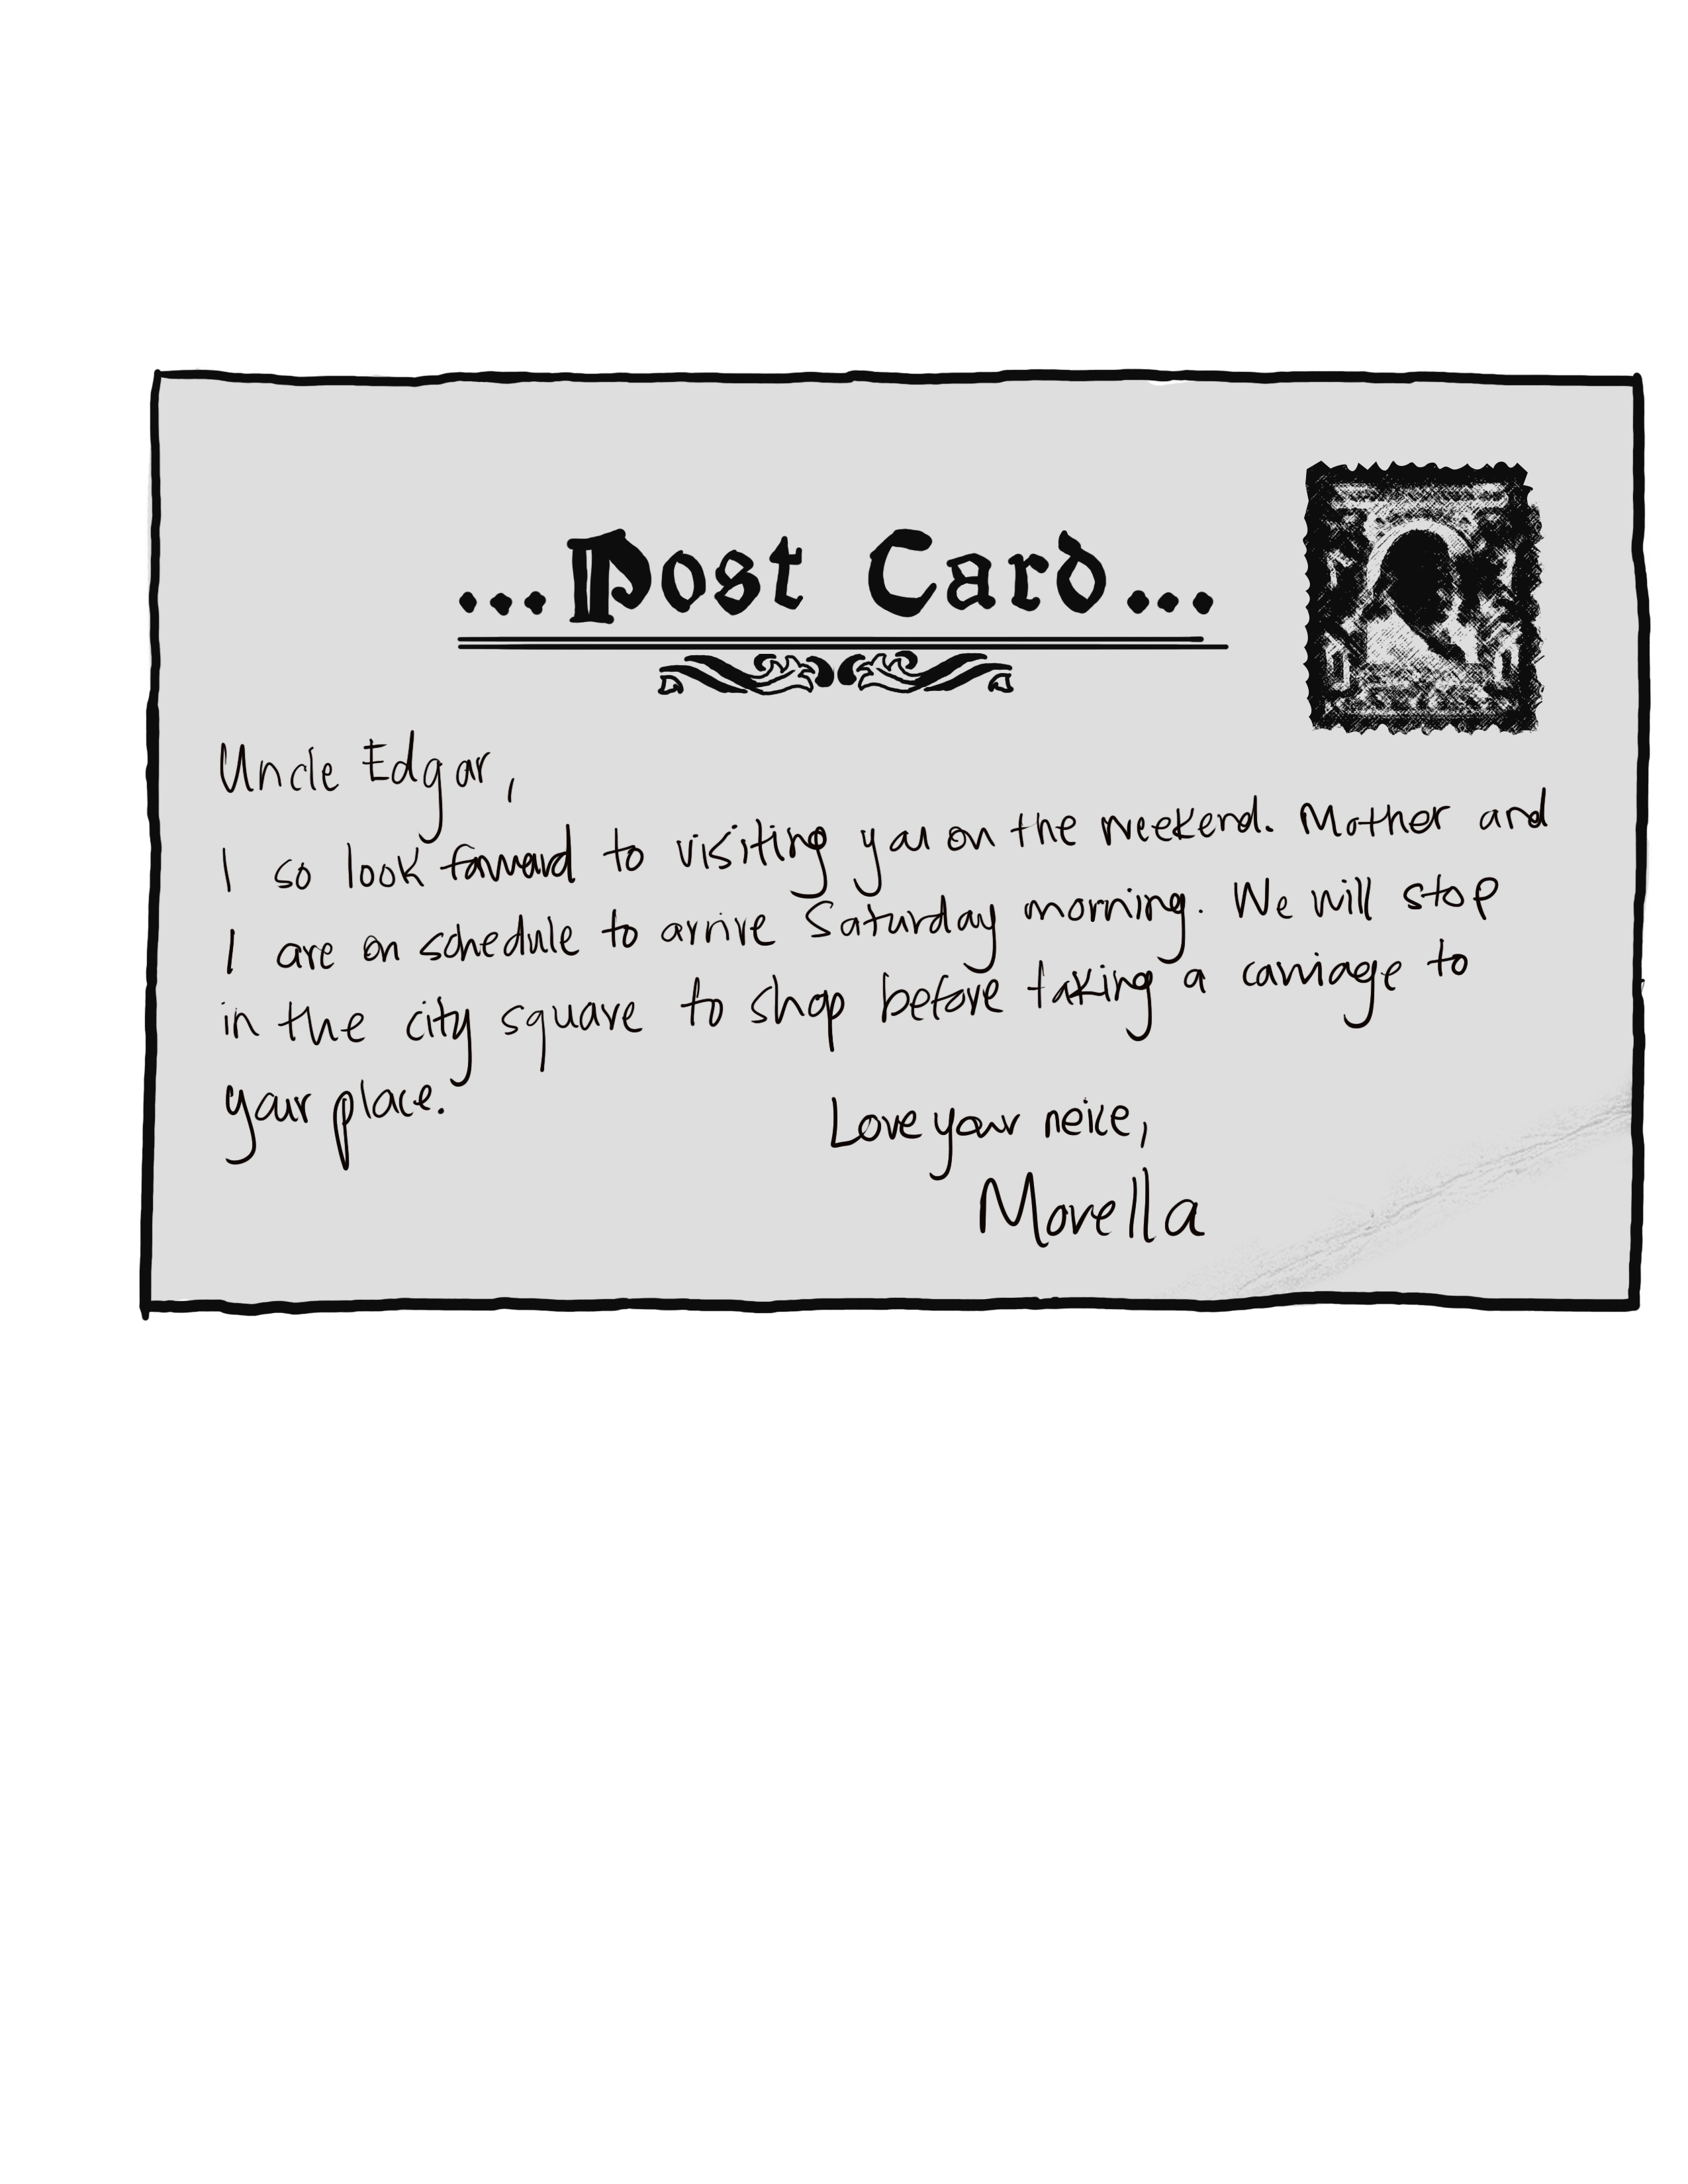 ...Post Card...
Uncle Edgar,
I so look forward to visiting you on the weekend. Mother and
I are on schedule to arrive Saturday morning. We will stop
in the city square to shop before taking a carriage to
your place.
Love your neice,
Morella